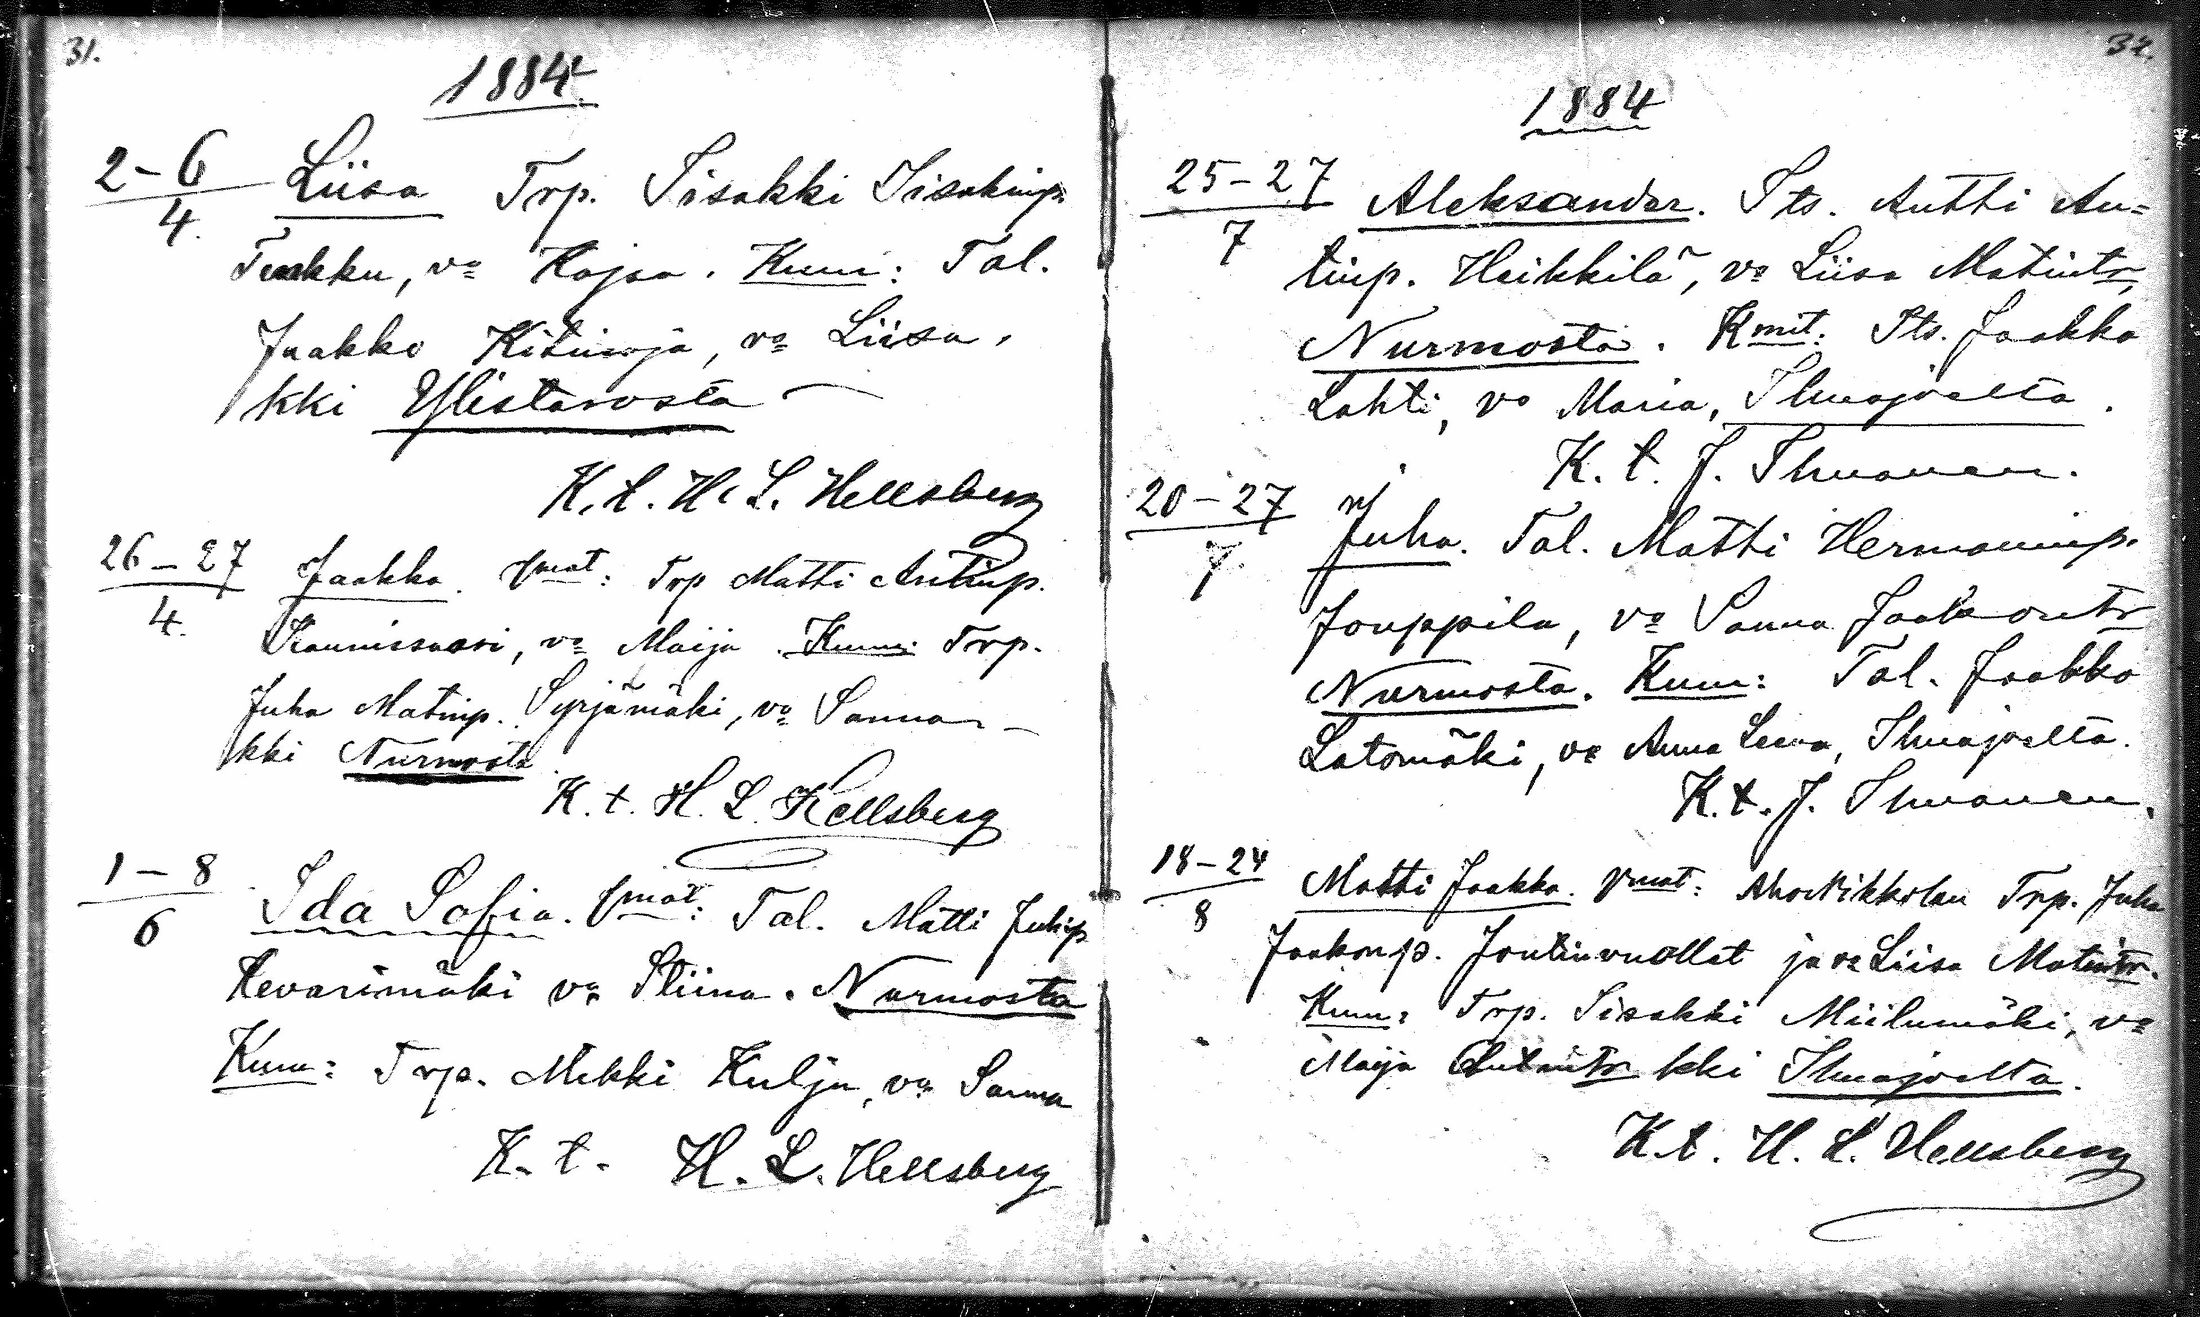 31.
1884
2-6/4. Liisa Trp. Iisakki Iisakinp.
Tuukku, vo Kajsa. Kum: Tal.
Jaakko Kitinoja, vo Liisa,
kki Ylistarosta
K. t. H. L. Hellsberg
26-27/4. Jaakko. Vmat: Trp Matti Antinp.
Kaunissaari, vo Maija. Kum: Trp.
Juha Matinp. Syrjämäki, vo Sanna
kki Nurmosta
K. t. H. L. Hellsberg
1-8/6 Ida Sofia. Vmat: Tal. Matti Juhinp
Kevarimäki vo Stiina. Nurmosta
Kum: Trp. Mikki Kulju, vo Sanna
K. t. H. L. Hellsberg
32.
1884
25-27/7 Aleksander. Its. Antti An=
tinp. Heikkilä, vo Liisa Matintr,
Nurmosta. Kmit: Its. Jaakko
Lahti, vo Maria, Ilmajoelta.
K. t. J. Ilmanen.
20-27/7. Juha. Tal. Matti Hermaninp.
Jouppila, vo Sanna Jaakontr
Nurmosta. Kum: Tal. Jaakko
Latomäki, vo Anna Leena, Ilmajoelta.
K. t. J. Ilmanen.
18-24/8 Matti Jaakko. Vmat: Trp. Juha
Jaakonp. ja vo Liisa Matintr.
Kum: Trp. Iisakki Miilumäki, vo
Maija Antintr kki Ilmajoelta.
K. t. H. L. Hellsberg